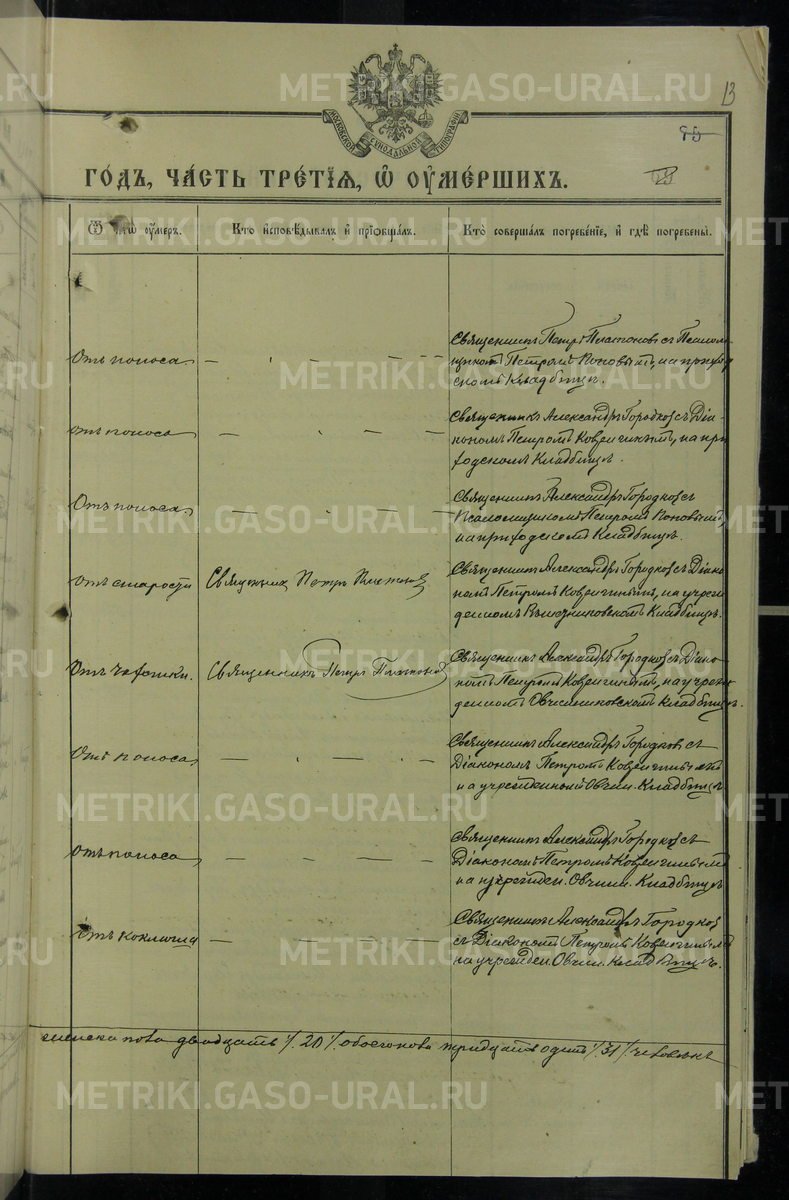 METRIKI.GASO-URAL.RU
13
МОСКОВСКОЙ СѴНОДАЛЬНОЙ ТИПОГРАФІИ
ГОДЪ, ЧАСТЬ ТРЕТІЯ, Ѡ ОУМЕРШИХЪ.
Ѿ чегѡ оумеръ.
Кто исповѣдывалъ и пріобщалъ.
Кто совершалъ погребеніе, и гдѣ погребены.
Отъ поноса
Священникъ Петръ Платоновъ съ Псалом-
щикомъ Петромъ Поповымъ, на приход
скомъ Кладбищѣ.
отъ поноса
Священникъ Александръ Городковъ съ Діа-
кономъ Петромъ Ковригинымъ, на при
ходскомъ Кладбищѣ.
Отъ поноса.
Священникъ Александръ Городковъ съ
Псаломщикомъ Петромъ Поповымъ,
на приходскомъ Кладбищѣ.
отъ старости
Священникъ Петръ Платоновъ
Священникъ Александръ Городковъ съ Діако
номъ Петромъ Ковригинымъ, на учреж
денномъ Кладбищѣ.
Отъ чахотки.
Священникъ Петръ Платоновъ
Священникъ Александръ Городковъ съ Діако-
номъ Петромъ Ковригинымъ, на учреж
денномъ Овчинниковскомъ кладбищѣ.
Отъ поноса
Священникъ Александръ Городковъ съ
Діакономъ Петромъ Ковригинымъ
на учрежденномъ Овчин. Кладбищѣ
Отъ поноса
Священникъ Александръ Городковъ съ
Діакономъ Петромъ Ковригинымъ
на учрежден. Овчин. Кладбищѣ
Отъ коклюша
Священникъ Александръ Городков
съ Діакономъ Петромъ Ковригинымъ
на учрежден. Овчин. кладбищѣ.
женска пола двадцать /. 20 /. обоего пола тридцать одинъ /. 31 / человѣкъ